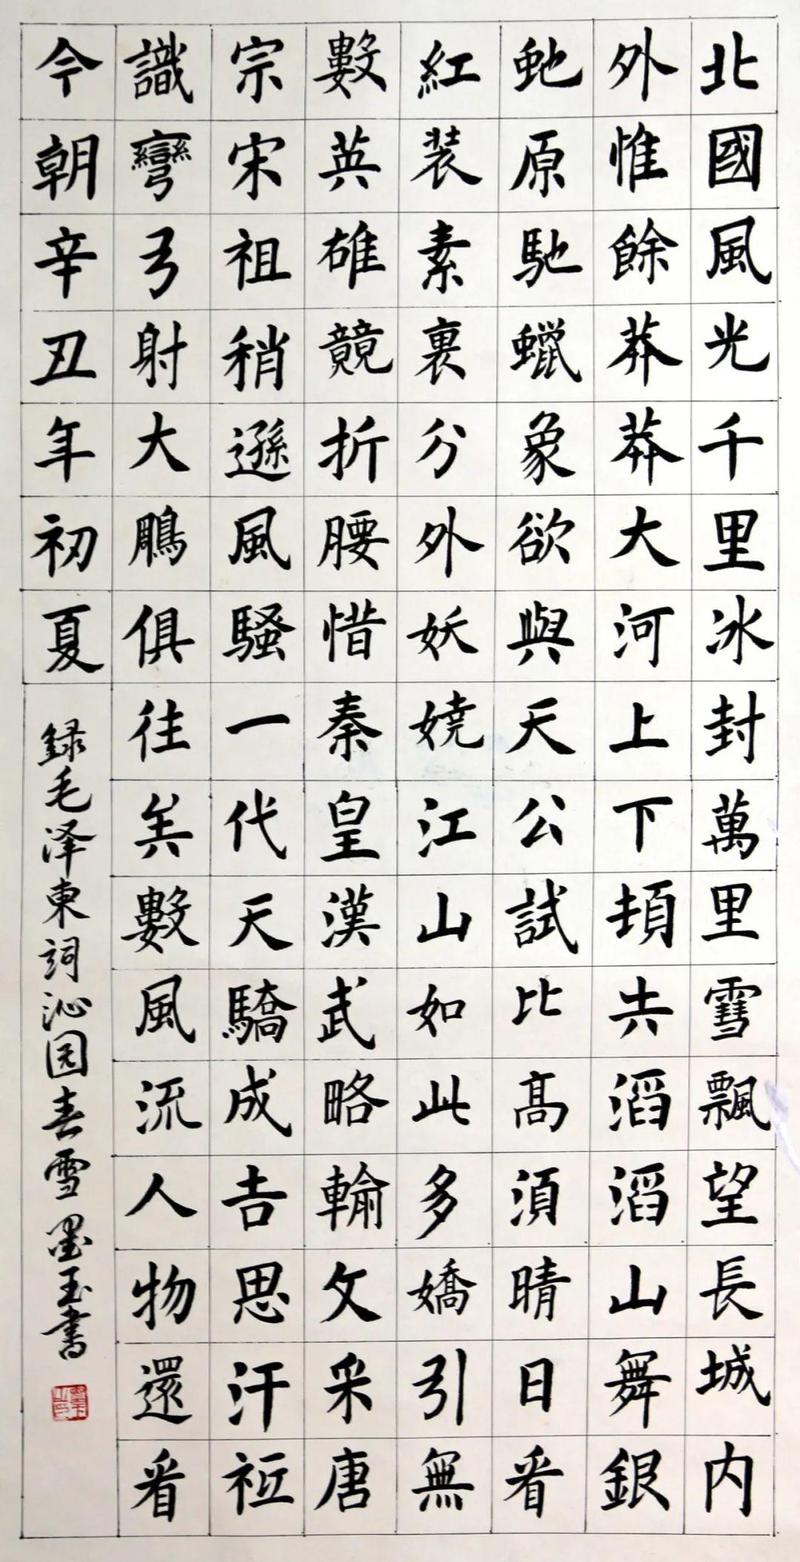 北國風光千里冰封萬里雪飄望長城内
外惟餘莽莽大河上下頓失滔滔山舞銀
虵原馳蠟象欲與天公試比高須晴日看
紅装素裏分外妖嬈江山如此多嬌引無
數英雄競折腰惜秦皇漢武略輸文采唐
宗宋祖稍遜風騷一代天驕成吉思汗祗
識彎弓射大鵰俱往矣數風流人物還看
今朝辛丑年初夏
録毛泽東詞沁园春雪墨玉書